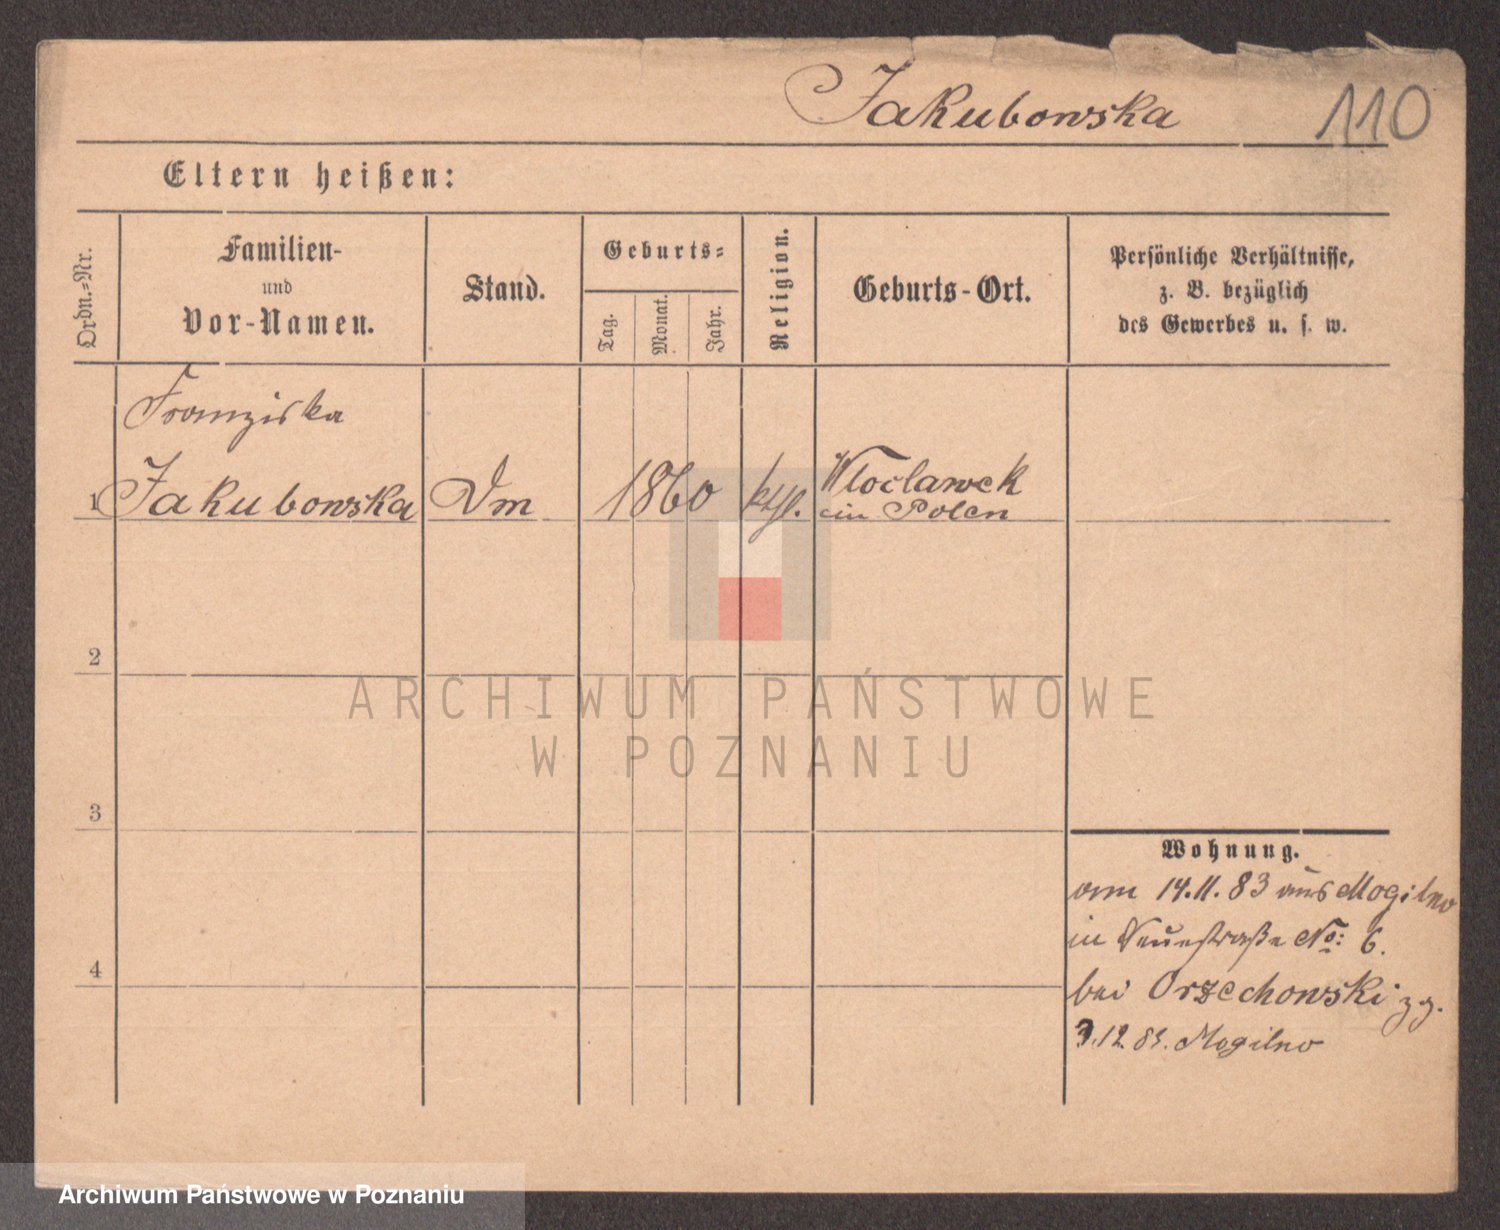 Jakubowska 110
Eltern heißen:
Ordn.-Nr.
Familien-
und
Vor-Namen.
Stand.
Geburts-
Tag.
Monat.
Jahr.
Religion.
Geburts-Ort.
Persönliche Verhältnisse,
z. B. bezüglich
des Gewerbes u. s. w.
Franziska
1 Jakubowska
1860
Wloclawek
in Polen
2
3
4
Wohnung.
14.11.83 aus Mogilno
in Neuestraße No: 6.
bei Orzechowski zg.
3.12 Mogilno
ARCHIWUM PAŃSTWOWE
W POZNANIU
Archiwum Państwowe w Poznaniu